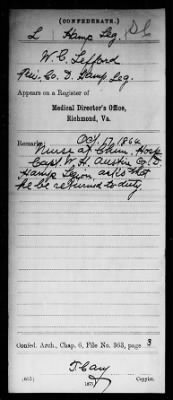 (CONFEDERATE.)
L Hamp Leg. S C
W. C. Lefford
Pvt. Co. D. Hamp. Leg.
Appears on a Register of
Medical Director's Office,
Richmond, Va.
Oct. 17, 1864
Remarks: Nurse at Chim. Hosp
Capt. W. H. Austin Co. D.
Hamp Legion, asks that
he be returned to duty.
Confed. Arch., Chap. 6, File No. 363, page 3
T. Cary
(635) Copyist.